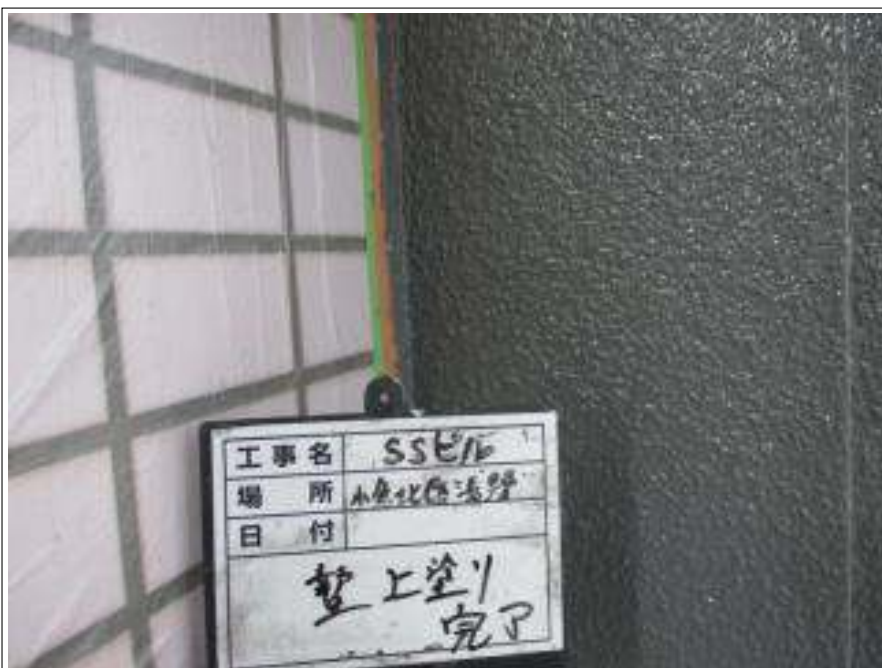 工事名 SSビル
場所
日付
壁 上塗り
完了